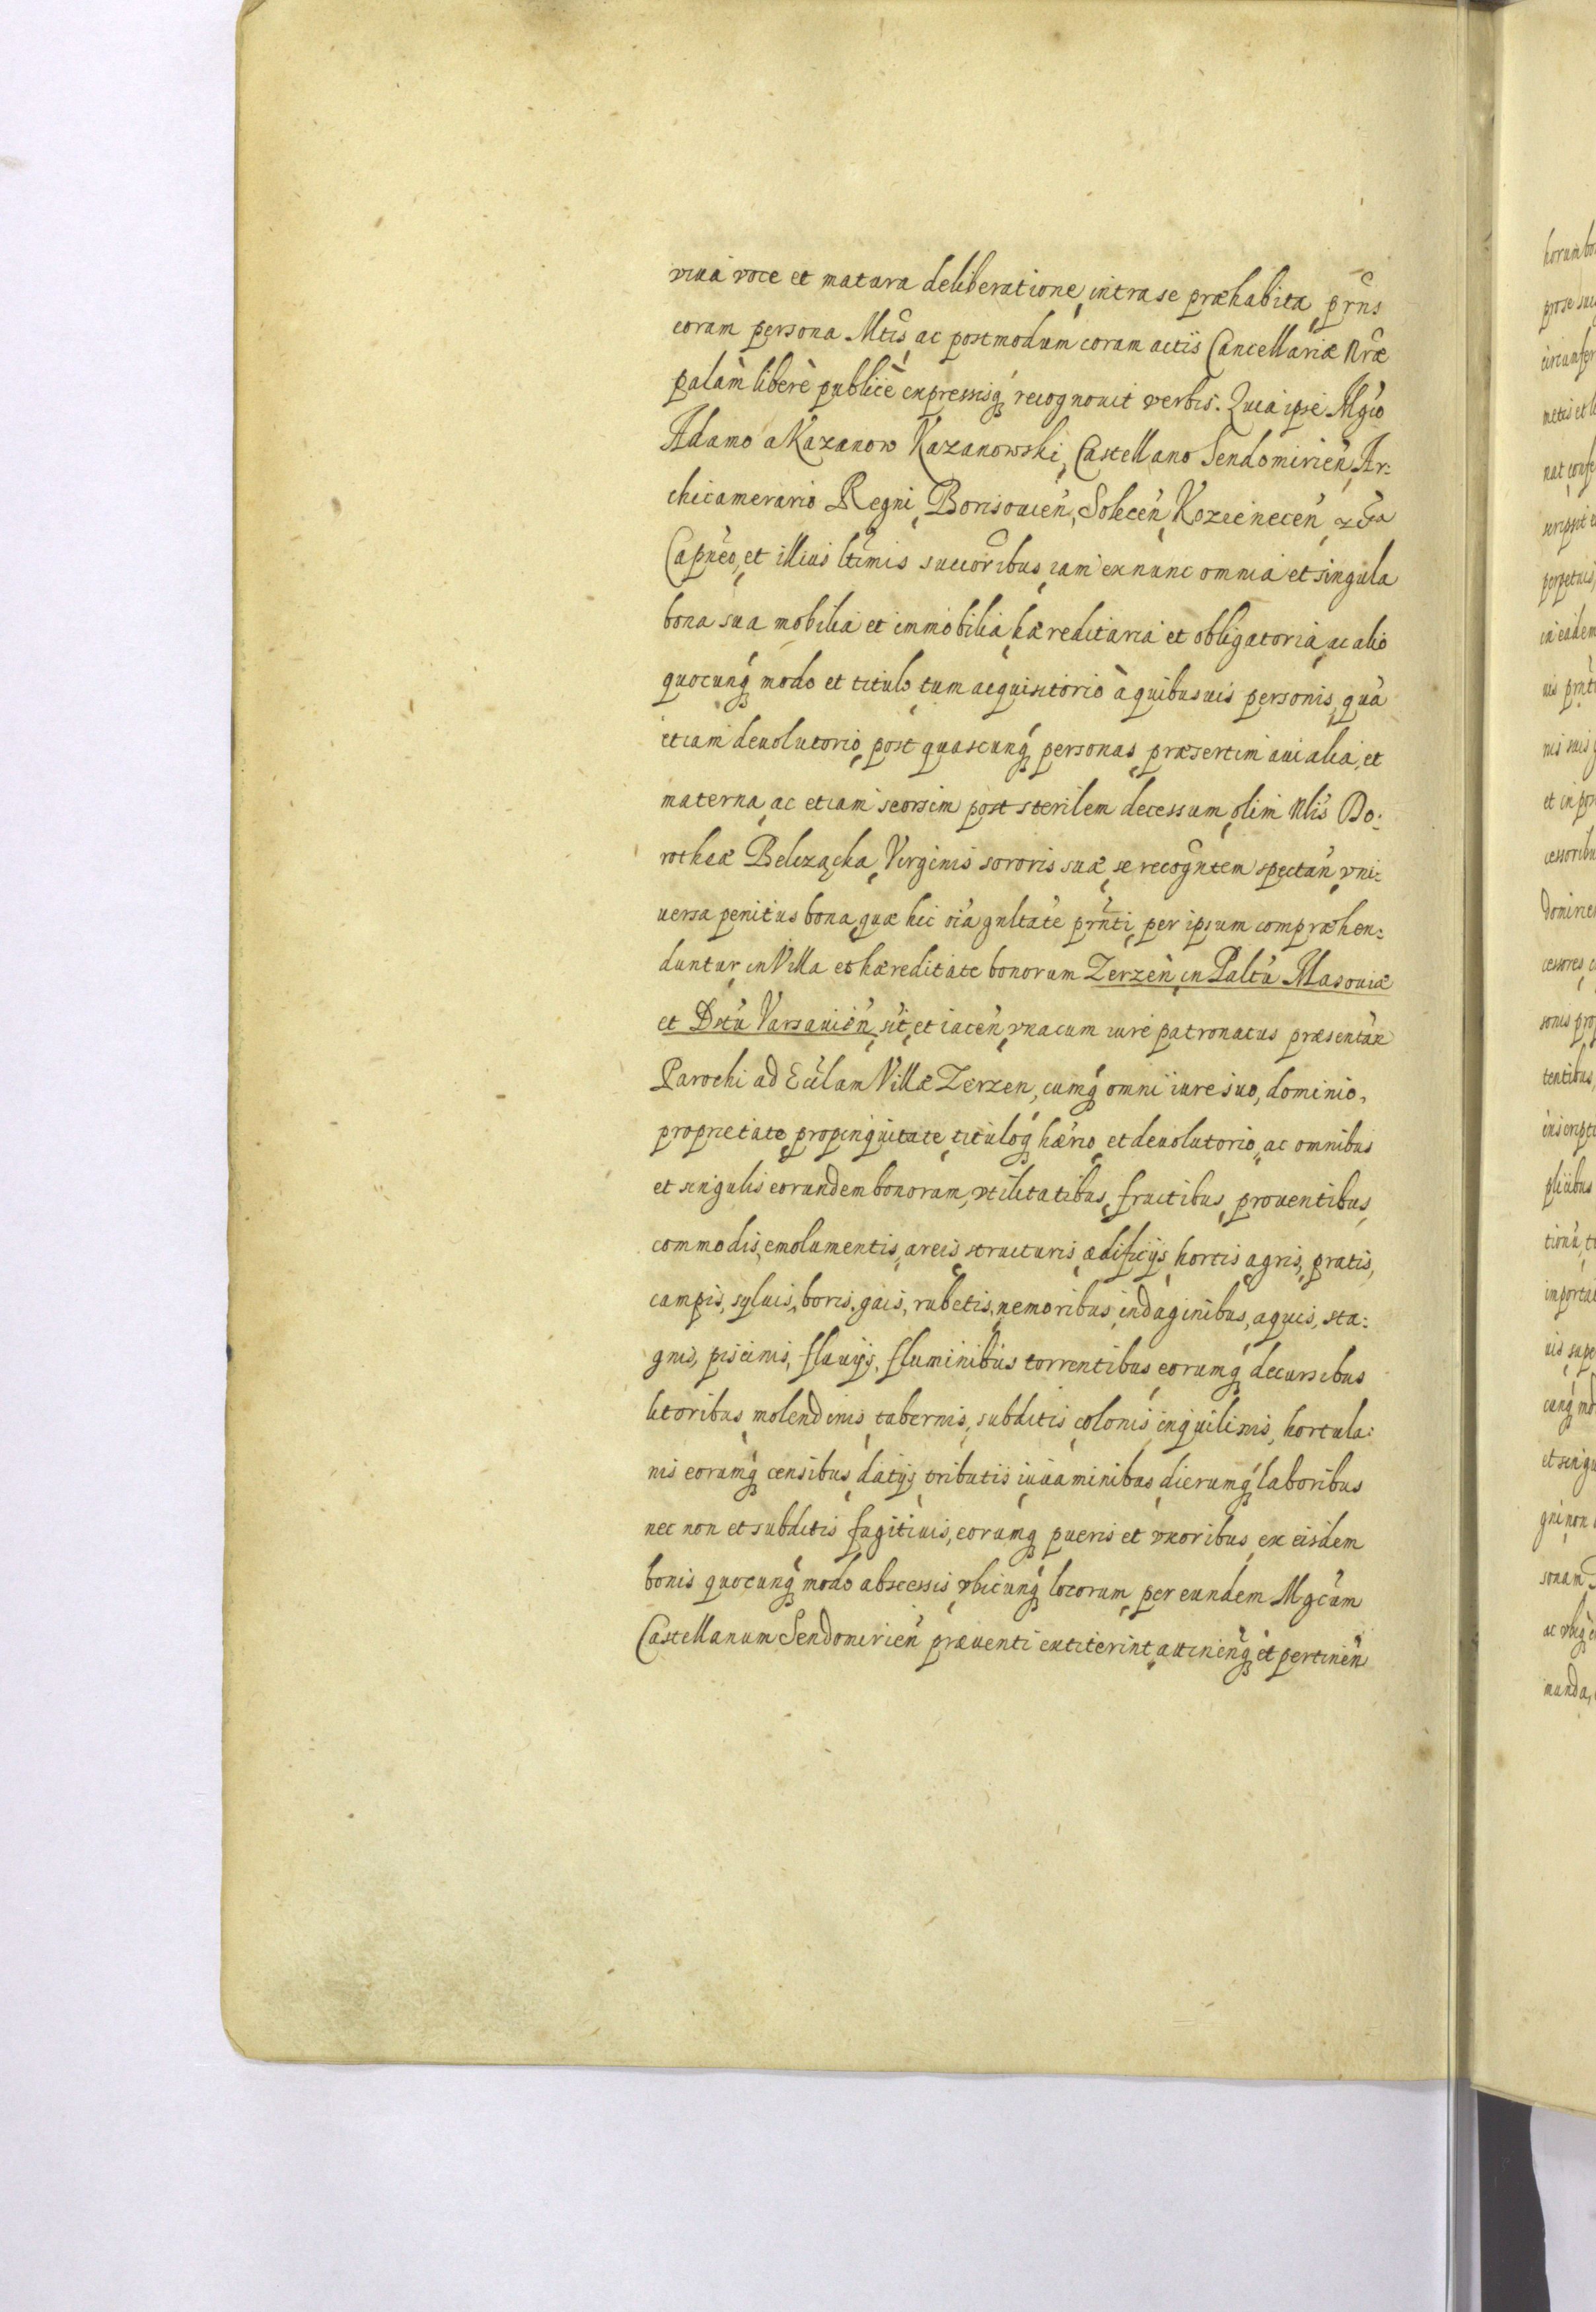 viua voce et matura deliberatione, intra se præhabita, prñs
coram persona Mtis, ac postmodum coram actis Cancellariæ Nræ
palàm liberè publicè expressisq́ recognouit verbis. Quia ipse Mgco
Adamo a Kazanow Kazanowski, Castellano Sendomirień, Ar:
chicamerario Regni, Borisouień, Soleceń, Kozieneceń,
Capneo, et illius ltimis succoribus, iam ex nunc omnia et singula
bona sua mobilia et immobilia, hæreditaria et obligatoria, ac alio
quocunq́ modo et titulo, tum acquisitorio à quibusuis personis, quà
etiam deuolutorio, post quascunq́ personas, præsertim auialia, et
materna, ac etiam seorsim post sterilem decessum, olim Nlis Do:
rotheæ Belczącka, Virginis sororis suæ, se recogntem spectań, vni:
uersa penitus bona, quæ hic oia gnltate prnti, per ipsum compræhen:
duntur, in Villa et hæreditate bonorum Zerzeń, in Paltu Masouiæ
et Drtu Varsauień, sit, et iaceń, vnacum iure patronatus præsentań
Parochi ad Ecclam Villæ Zerzen, cumq́ omni iure suo, dominio,
proprietate, propinquitate, tituloq́ hærio, et deuolutorio, ac omnibus
et singulis eorundem bonorum, vtilitatibus, fructibus, prouentibus,
commodis, emolumentis, areis, structuris, ædificijs, hortis, agris, pratis,
campis, syluis, boris, gais, rubetis, nemoribus, indaginibus, aquis, sta:
gnis, piscinis, fluuijs, fluminibus torrentibus, eorumq́ decursibus
litoribus, molendinis, tabernis, subditis, colonis, inquilinis, hortula:
nis eorumq́ censibus, datijs, tributis, iuuaminibus, dierumq́ laboribus
nec non et subditis fugitiuis, eorumq́ pueris et vxoribus, ex eisdem
bonis quocunq́ modo abscessis, vbicunq́ locorum, per eundem Mgcum
Castellanum Sendomirień præuenti extiterint, attineńq́ et pertineń